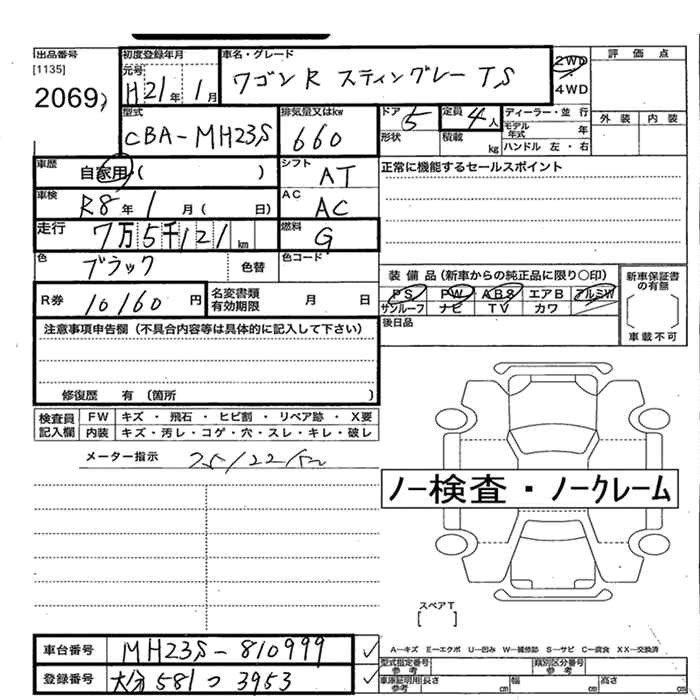 出品番号 初度登録年月 車名・グレード 評価点
[1135] 元号 H21年 1月 ワゴンR スティングレー TS 2WD
2069 4WD
型式 排気量又はkw ドア 5 定員 4人 ディーラー・並行 外装 内装
CBA-MH23S 660 形状 積載 kg モデル年式 年
ハンドル 左・右
車歴 自家用( ) シフト AT 正常に機能するセールスポイント
車検 R8年 1月( 日) AC AC
走行 7万5千121km 燃料 G
色 ブラック 色替 色コード 装備品(新車からの純正品に限り○印) 新車保証書の有無
R券 10160円 名変書類有効期限 月 日 PS PW ABS エアB アルミW
サンルーフ ナビ TV カワ 車載不可
注意事項申告欄(不具合内容等は具体的に記入して下さい) 後日品
修復歴 有(箇所 )
検査員記入欄 FW キズ・飛石・ヒビ割・リペア跡・X要
内装 キズ・汚レ・コゲ・穴・スレ・キレ・破レ
メーター指示
ノー検査・ノークレーム
スペアT
[ ]
車台番号 MH23S-810999
A-キズ E-エクボ U-凹み W-補修跡 S-サビ C-腐食 XX-交換済
登録番号 大分 581 つ 3953
型式指定番号 参考 類別区分番号 参考
車庫証明用 参考 長さ cm 幅 cm 高さ cm